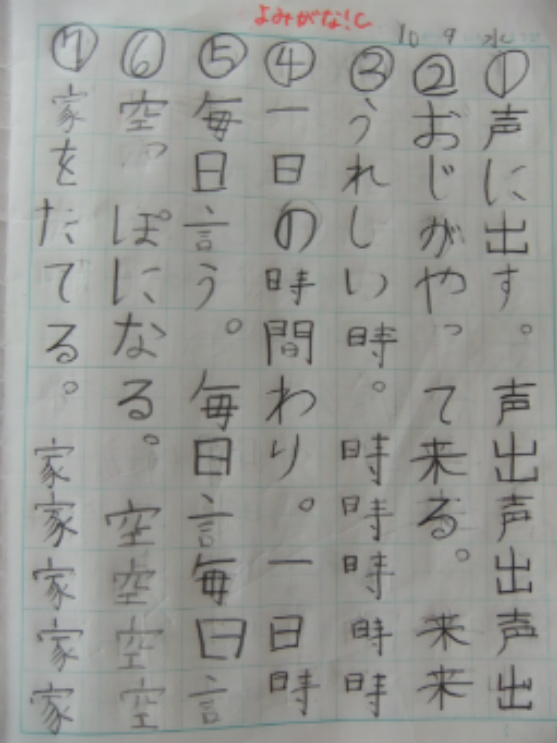 よみがな!
10 9 水
①声に出す。声出声出声出
②おじがやって来る。来来
③うれしい時。時時時時時
④一日の時間わり。一日時
⑤毎日言う。毎日言毎日言
⑥空っぽになる。空空空空
⑦家をたてる。家家家家家